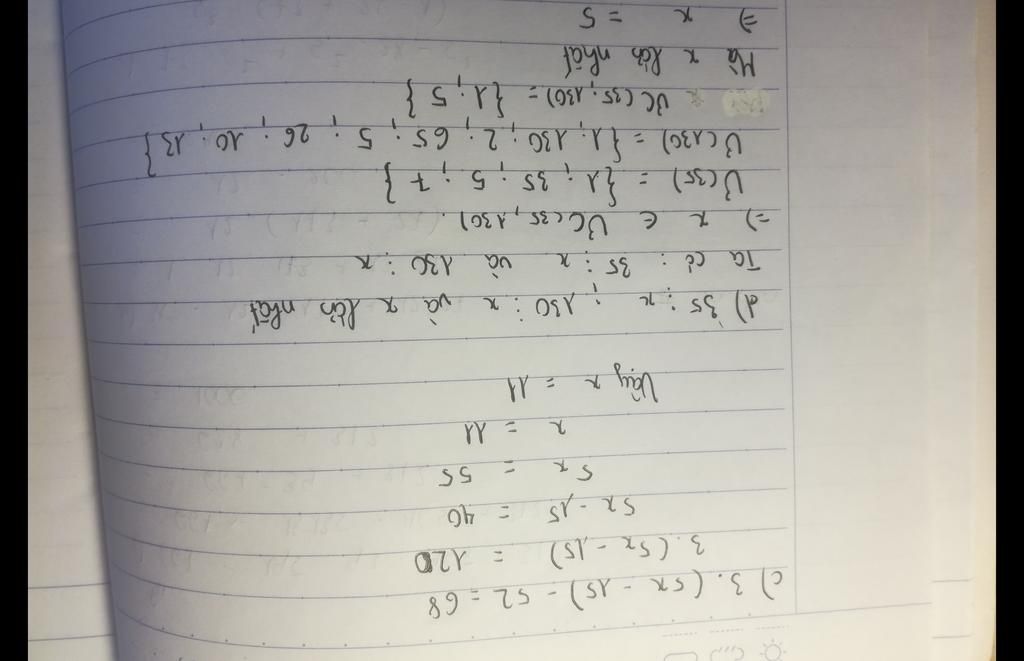 c) 3. (5x - 15) - 52 = 68
3. (5x - 15) = 120
5x - 15 = 40
5x = 55
x = 11
Vậy x = 11
d) 35 ⋮ x ; 130 ⋮ x và x lớn nhất
Ta có : 35 ⋮ x và 130 ⋮ x
=> x ∈ ƯC(35, 130).
Ư(35) = {1 ; 35 ; 5 ; 7 }
Ư(130) = {1 ; 130 ; 2 ; 65 ; 5 ; 26 ; 10 ; 13 }
ƯC(35 ; 130) = {1 ; 5 }
Mà x lớn nhất
=> x = 5